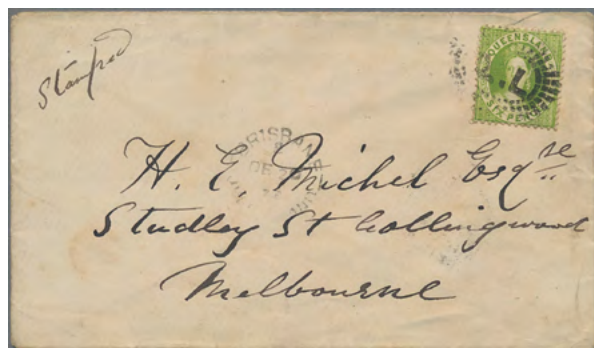 Stamped
QUEENSLAND
PENCE
7.
BRISBANE
H. E. Michel Esqre
Studley St Collingwood
Melbourne